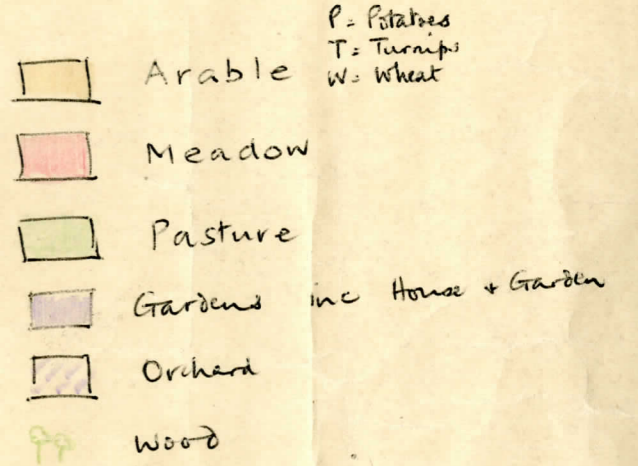 P= Potatoes
T= Turnips
W= Wheat
Arable
Meadow
Pasture
Gardens inc House + Garden
Orchard
Wood